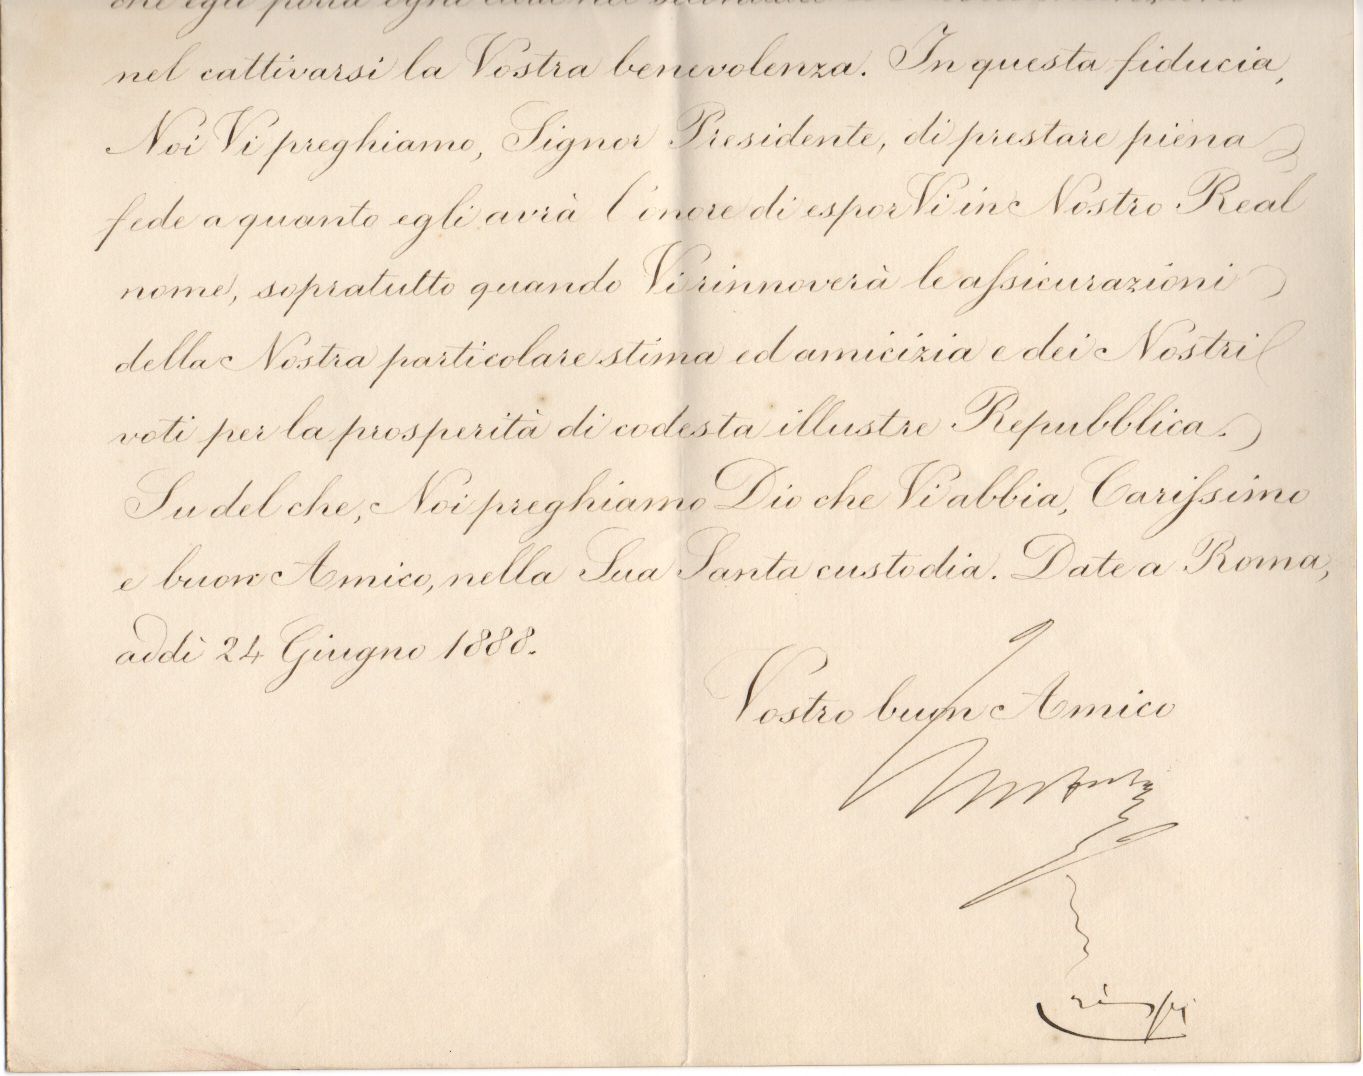 che egli porrà ogni
nel cattivarsi la Vostra benevolenza. In questa fiducia,
Noi Vi preghiamo, Signor Presidente, di prestare piena
fede a quanto egli avrà l'onore di esporVi in Nostro Real
nome, sopratutto quando Vi rinnoverà le assicurazioni
della Nostra particolare stima ed amicizia e dei Nostri
voti per la prosperità di codesta illustre Repubblica.
Su del che, Noi preghiamo Dio che Vi abbia, Carissimo
e buon Amico, nella Sua Santa custodia. Date a Roma,
addì 24 Giugno 1888.
Vostro buon Amico
Crispi